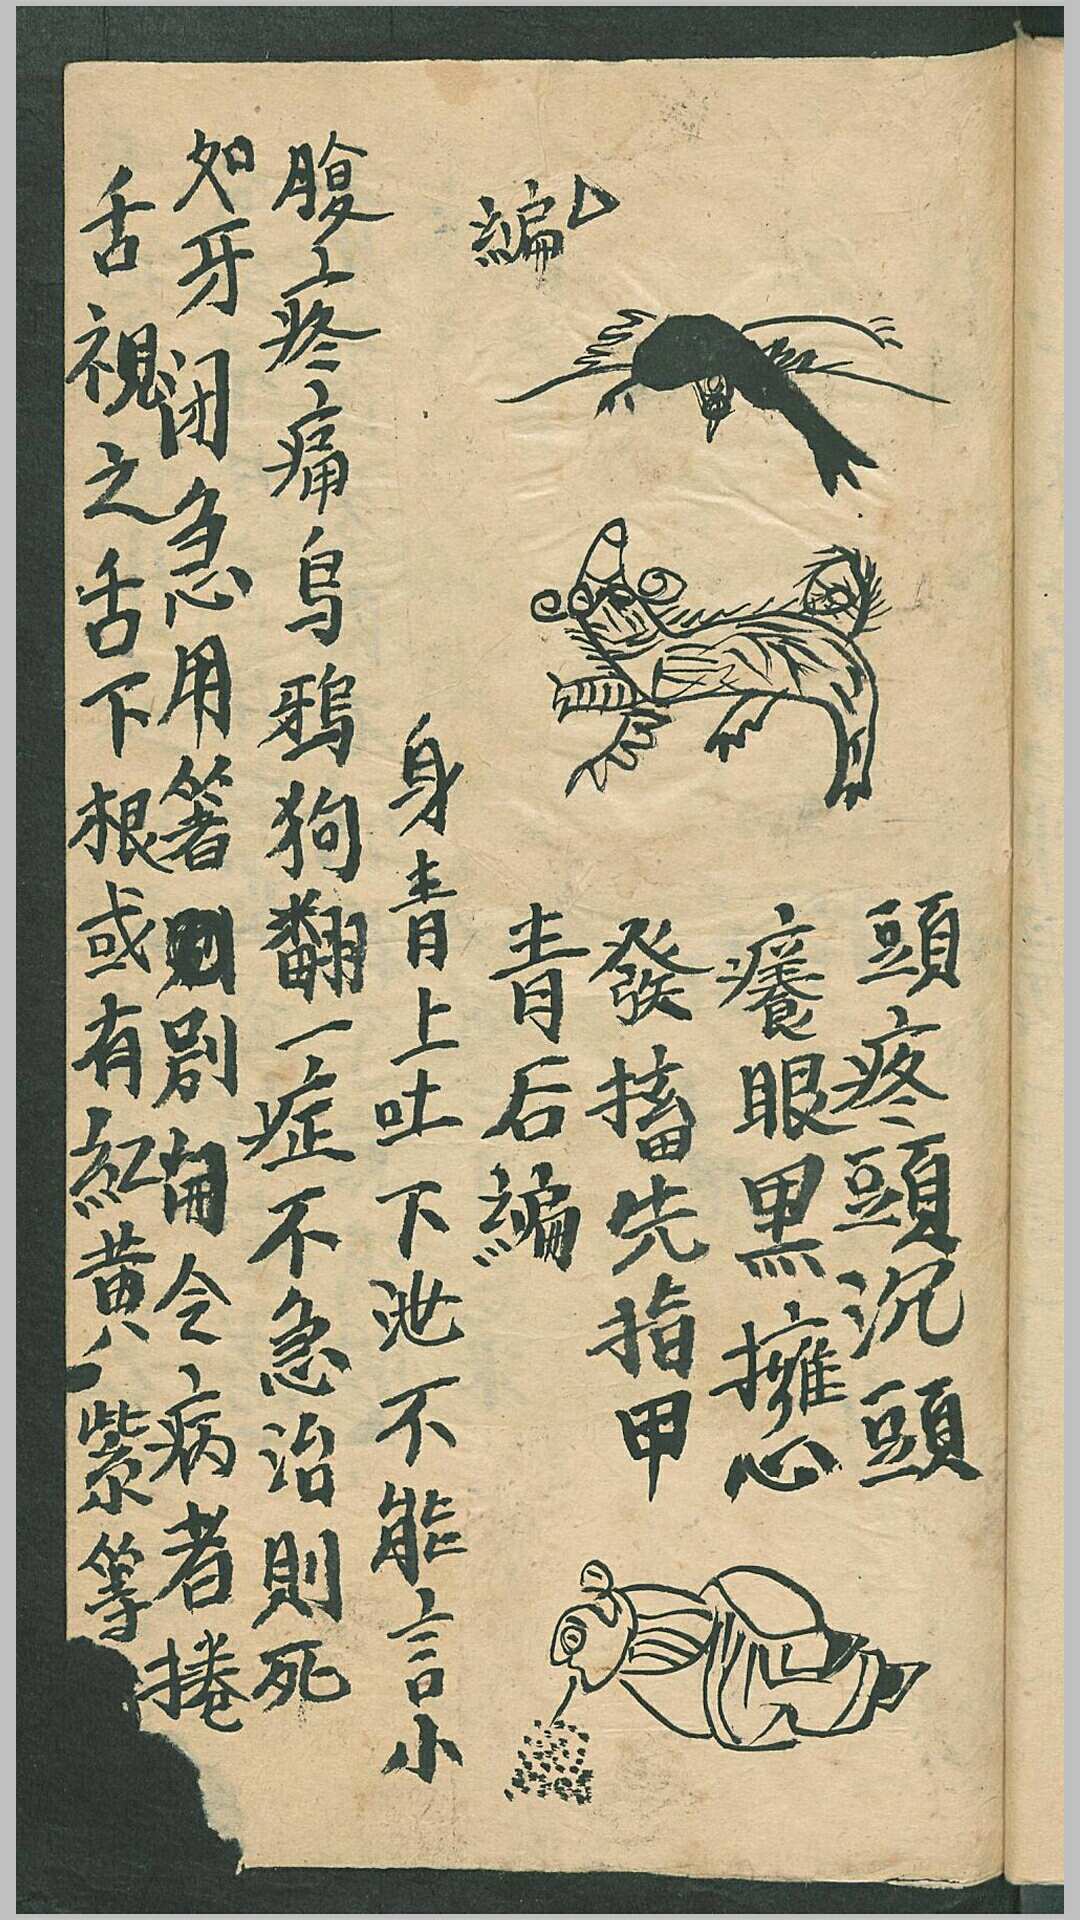 頭疼頭沉頭
癢眼黒擁心
發搐先指甲
青后編
編
身青上吐下泄不能言小
腹上疼痛烏鴉狗翻一症不急治則死
如牙闭急用箸别 令病者捲
舌視之舌下根或有紅黄紫等